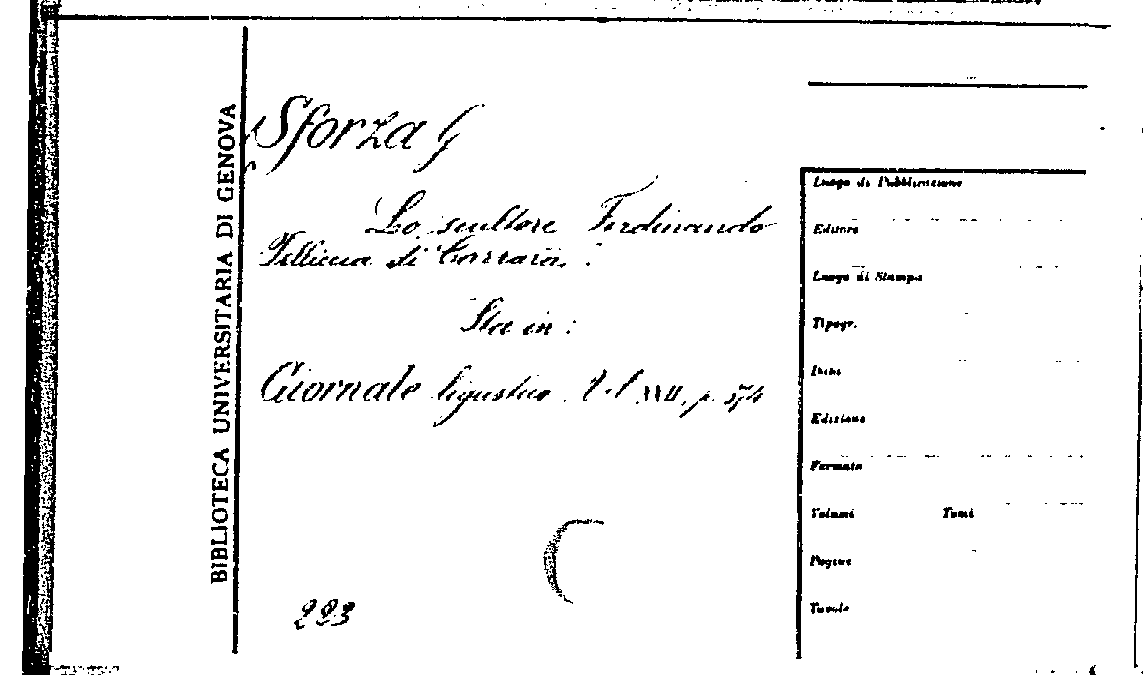 BIBLIOTECA UNIVERSITARIA DI GENOVA
Sforza G
Lo scultore Ferdinando
Pelliccia di Carrara.
Sta in:
Giornale ligustico XVII, p.
223
Luogo di Pubblicazione
Editore
Luogo di Stampa
Tipogr.
Data
Edizione
Formato
Volumi Tomi
Pagine
Tavole